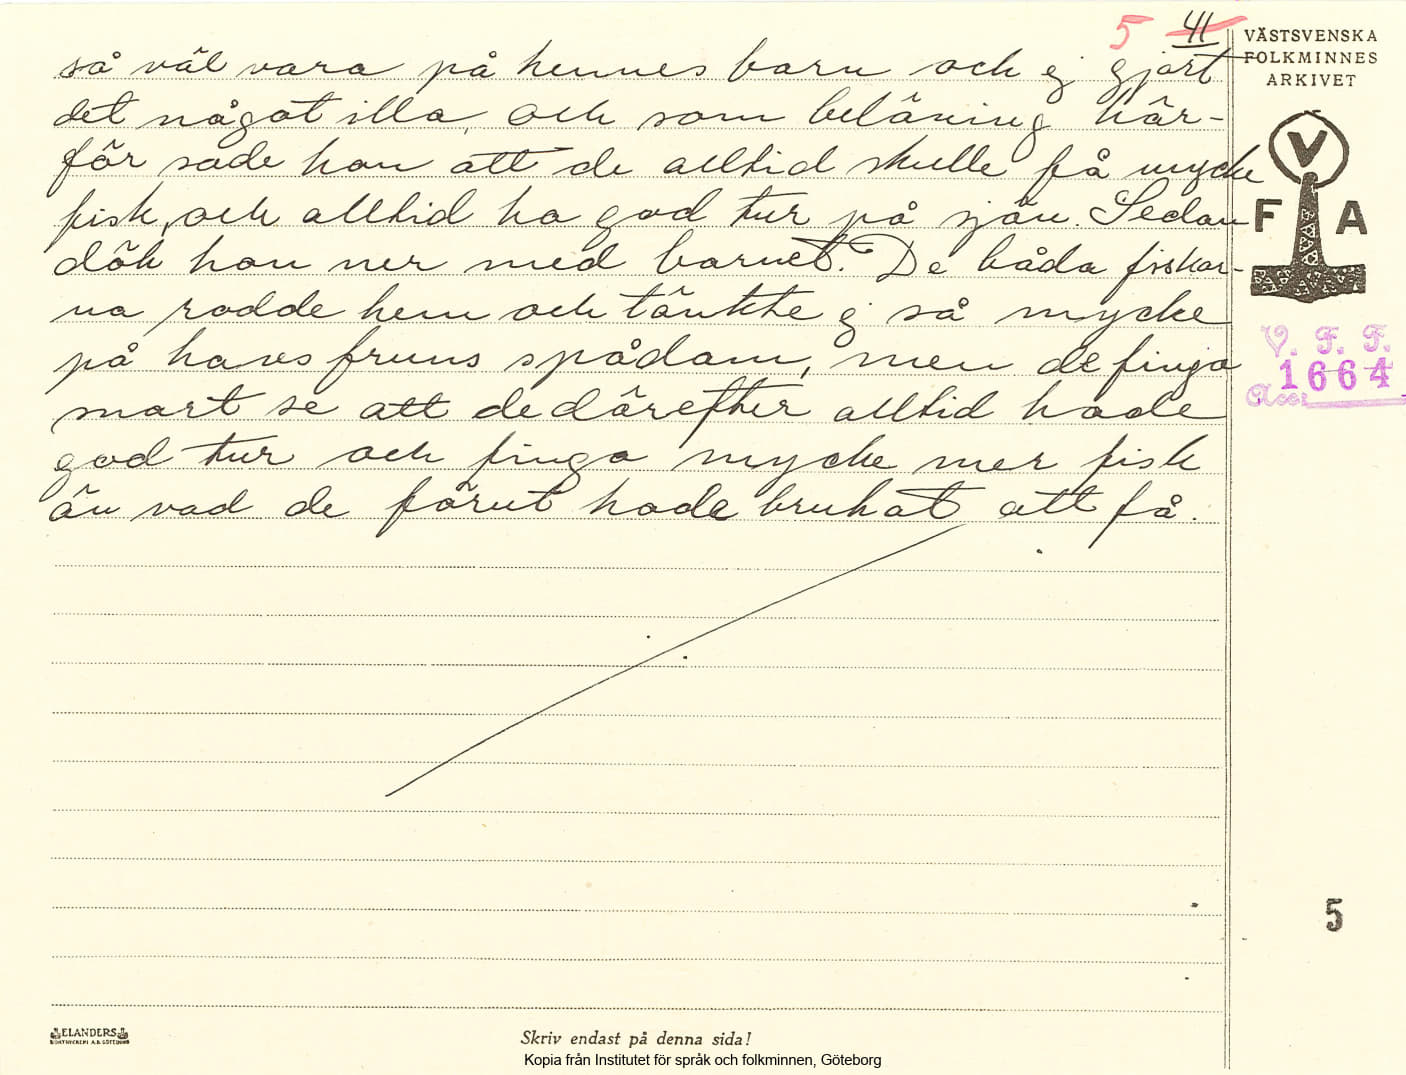 5 41
VÄSTSVENSKA
FOLKMINNES
ARKIVET
så väl vara på hennes barn och ej gjort
det något illa, och som belåning här-
för sade hon att de alltid skulle få mycke
fisk, och alltid ha god tur på sjön. Sedan
dök hon ner med barnet. De båda fiskar-
na rodde hem och tänkte ej så mycke
på havsfruns spådom, men de finga
snart se att de därefter alltid hade
god tur och finga mycke mer fisk
än vad de förut hade brukat att få.
V
F A
V. F. F.
1664
Acc.
5
ELANDERS
BOKTRYCKERI A.B. GÖTEBORG
Skriv endast på denna sida!
Kopia från Institutet för språk och folkminnen, Göteborg